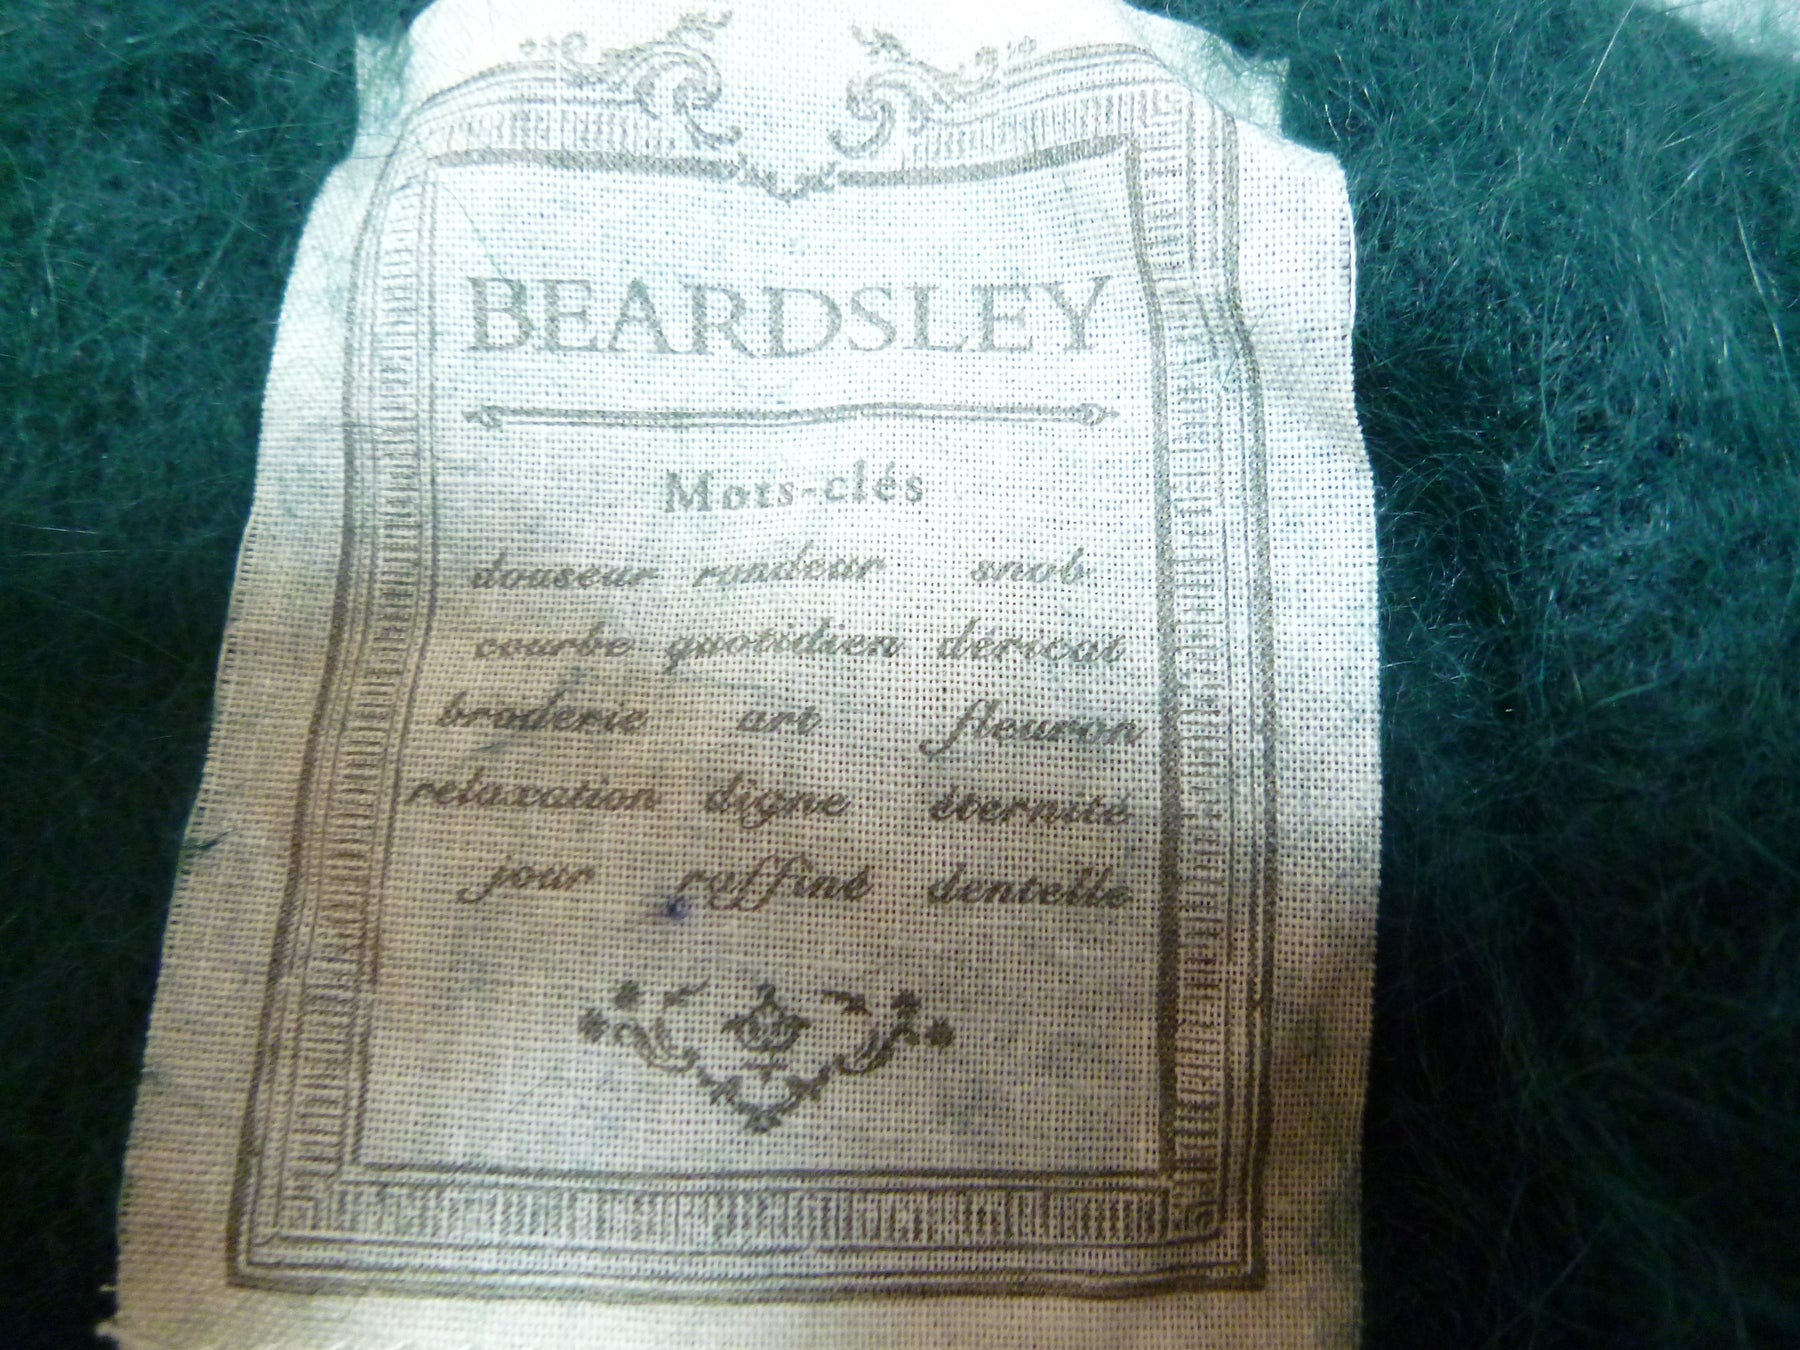 BEARDSLEY
Mots-clés
douseur rondeur snob
courbe quotidien dericat
broderie art fleuron
relaxation digne éternité
jour raffiné dentelle